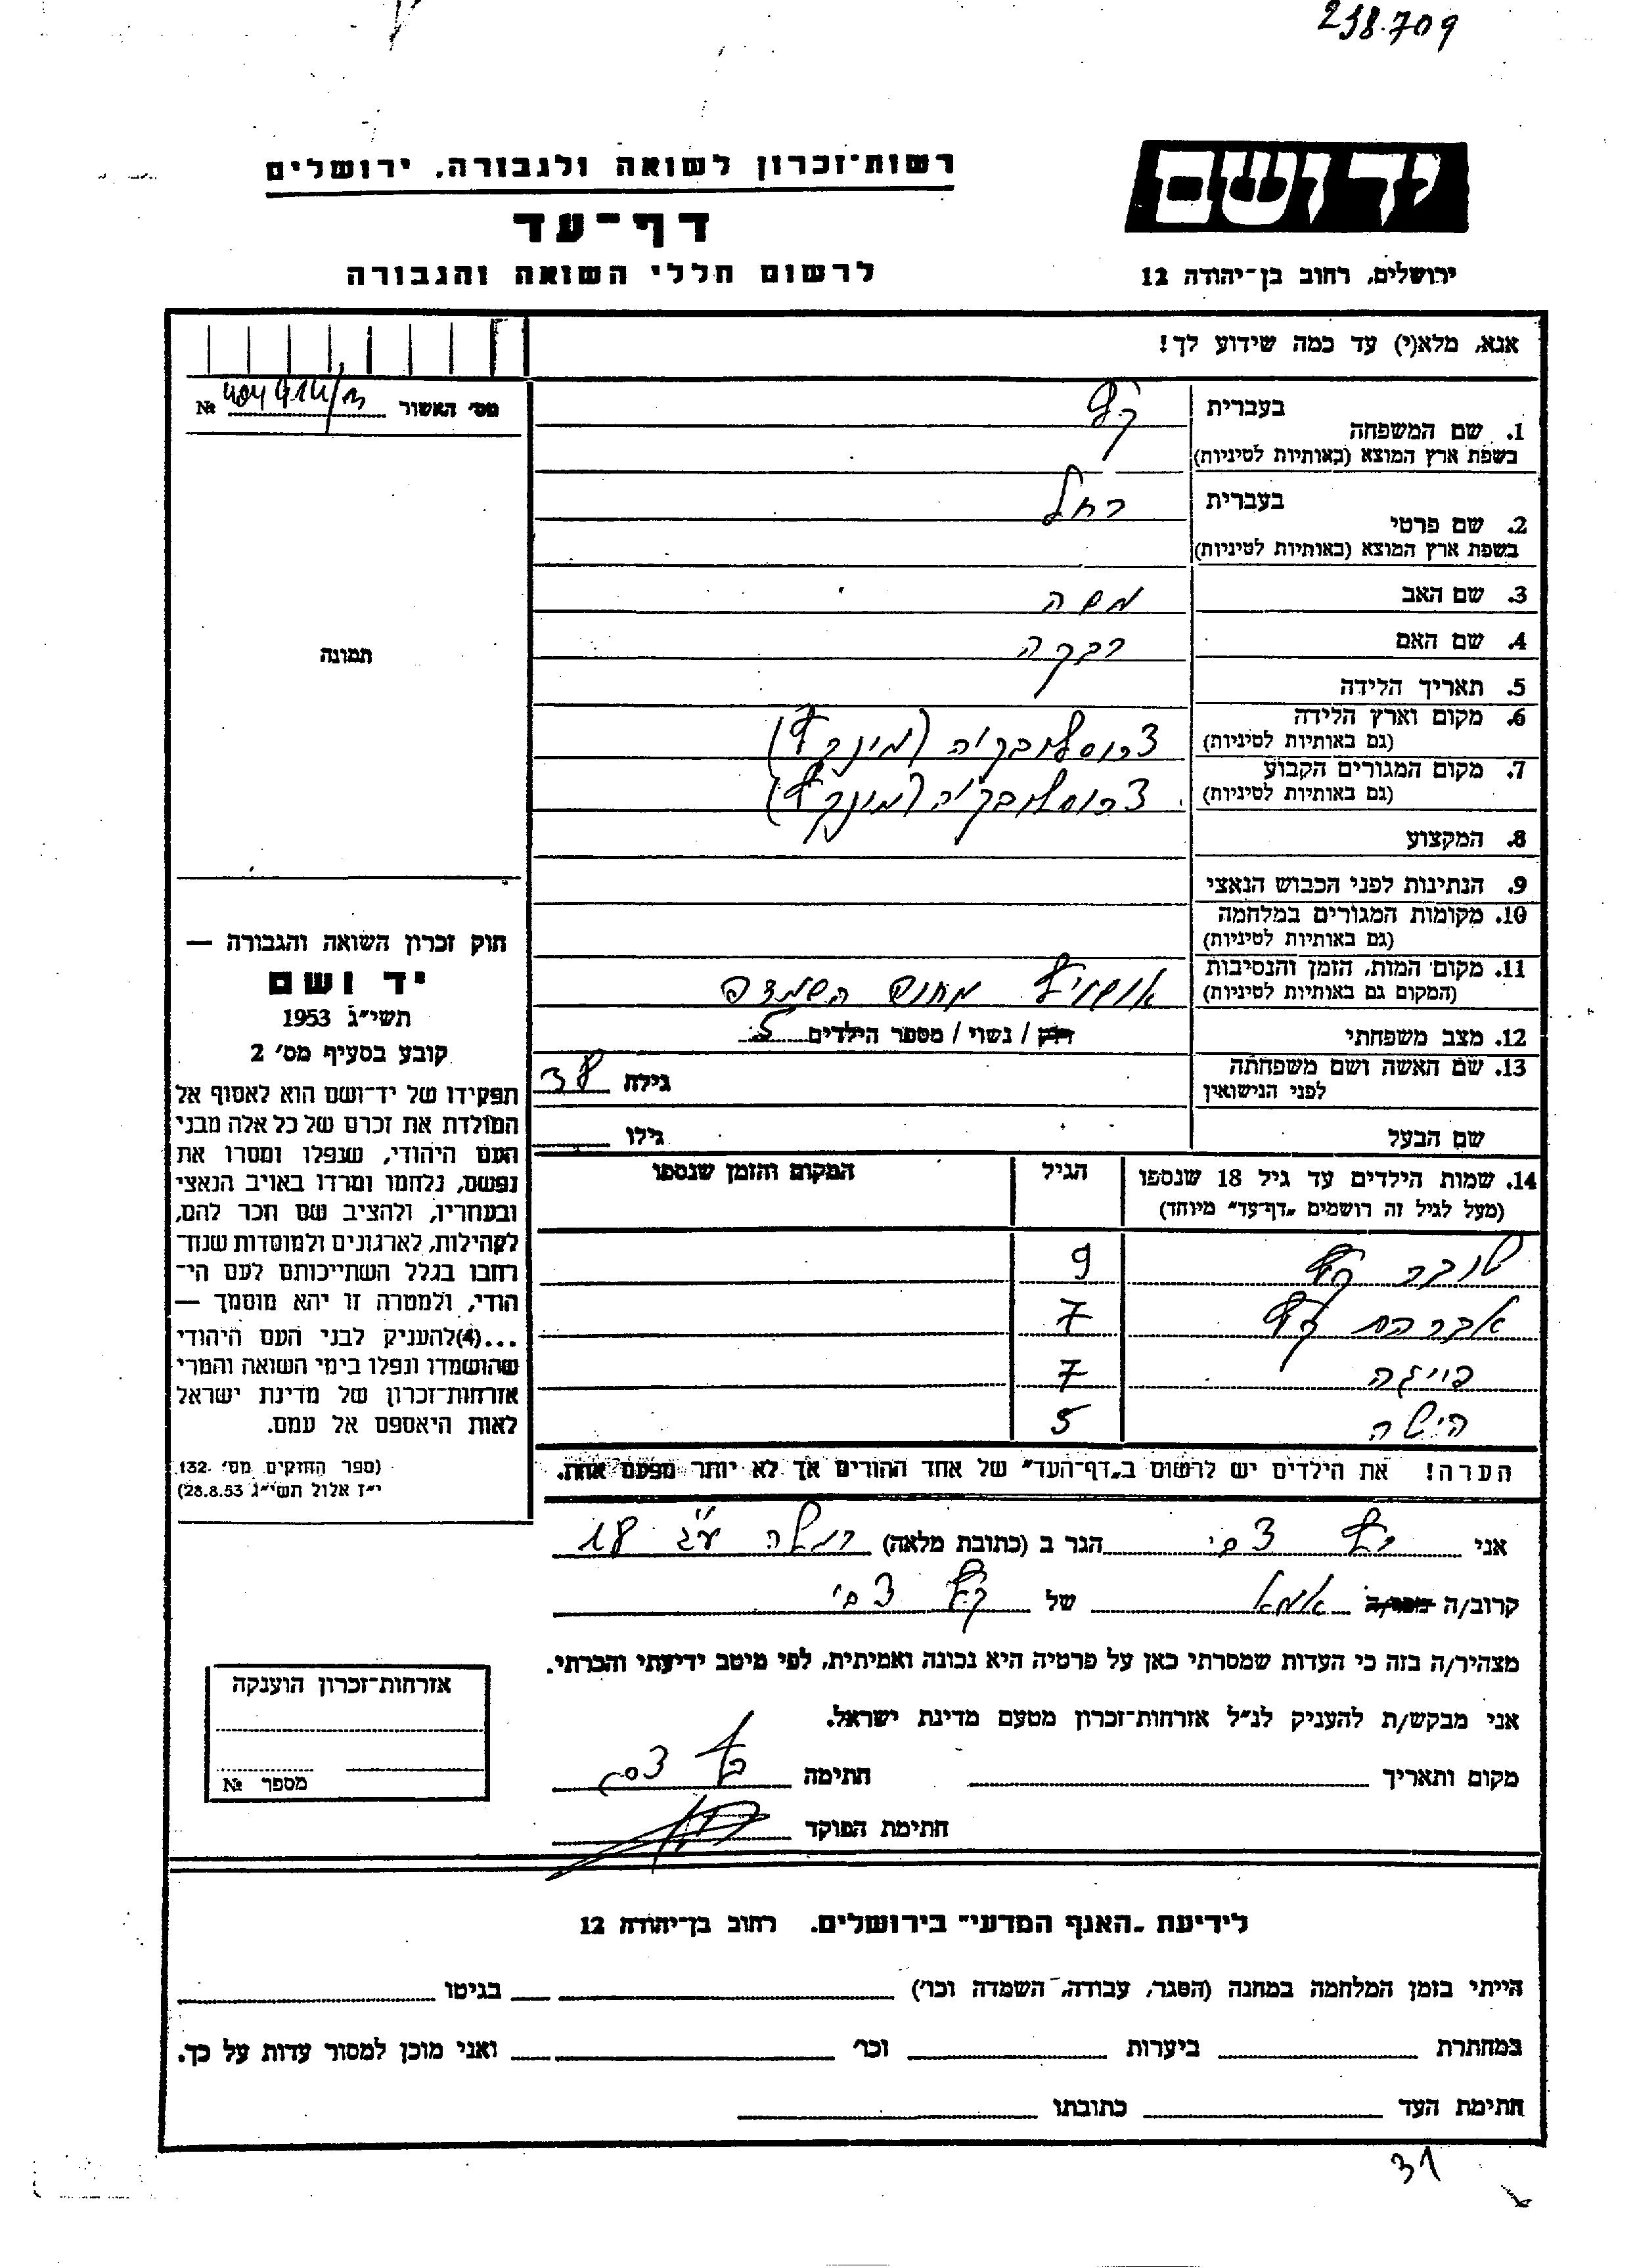 238.709
יד ושם
ירושלים, רחוב בן־יהודה 12
רשות־זכרון לשואה ולגבורה, ירושלים
דף־עד
לרשום חללי השואה והגבורה
אנא, מלא(י) עד כמה שידוע לך!
מס׳ האשור №
1. שם המשפחה בעברית
בשפת ארץ המוצא (באותיות לטיניות)
2. שם פרטי בעברית רחל
בשפת ארץ המוצא (באותיות לטיניות)
3. שם האב משה
4. שם האם רבקה
5. תאריך הלידה
6. מקום וארץ הלידה
(גם באותיות לטיניות)
צכוסלובקיה
7. מקום המגורים הקבוע
(גם באותיות לטיניות)
צכוסלובקיה
8. המקצוע
9. הנתינות לפני הכבוש הנאצי
10. מקומות המגורים במלחמה
(גם באותיות לטיניות)
11. מקום המות, הזמן והנסיבות
(המקום גם באותיות לטיניות)
אושויץ מחנה השמדה
12. מצב משפחתי רוק / נשוי / מספר הילדים 5
13. שם האשה ושם משפחתה
לפני הנישואין
גילה 38
שם הבעל גילו
14. שמות הילדים עד גיל 18 שנספו הגיל המקום והזמן שנספו
(מעל לגיל זה רושמים „דף־עד״ מיוחד)
9
אברהם 7
פייגה 7
5
הערה! את הילדים יש לרשום ב„דף־העד״ של אחד ההורים אך לא יותר מפעם אחת.
תמונה
חוק זכרון השואה והגבורה —
יד ושם
תשי״ג 1953
קובע בסעיף מס׳ 2
תפקידו של יד־ושם הוא לאסוף אל
המולדת את זכרם של כל אלה מבני
העם היהודי, שנפלו ומסרו את
נפשם, נלחמו ומרדו באויב הנאצי
ובעוזריו, ולהציב שם וזכר להם,
לקהילות, לארגונים ולמוסדות שנח־
רבו בגלל השתייכותם לעם הי־
הודי, ולמטרה זו יהא מוסמך —
...(4)להעניק לבני העם היהודי
שהושמדו ונפלו בימי השואה והמרי
אזרחות־זכרון של מדינת ישראל
לאות היאספם אל עמם.
(ספר החוקים מס׳ 132.
י״ז אלול תשי״ג 28.8.53)
אני צבי הגר ב (כתובת מלאה) רמלה 18
קרוב/ה מכר/ה אמא של צבי
מצהיר/ה בזה כי העדות שמסרתי כאן על פרטיה היא נכונה ואמיתית, לפי מיטב ידיעתי והכרתי.
אני מבקש/ת להעניק לנ״ל אזרחות־זכרון מטעם מדינת ישראל.
מקום ותאריך חתימה צבי
חתימת הפוקד
אזרחות־זכרון הוענקה
מספר №
לידיעת „האגף המדעי״ בירושלים. רחוב בן־יהודה 12
הייתי בזמן המלחמה במחנה (הסגר, עבודה, השמדה וכו׳) בגיטו
במחתרת ביערות וכו׳ ואני מוכן למסור עדות על כך.
חתימת העד כתובתו
31